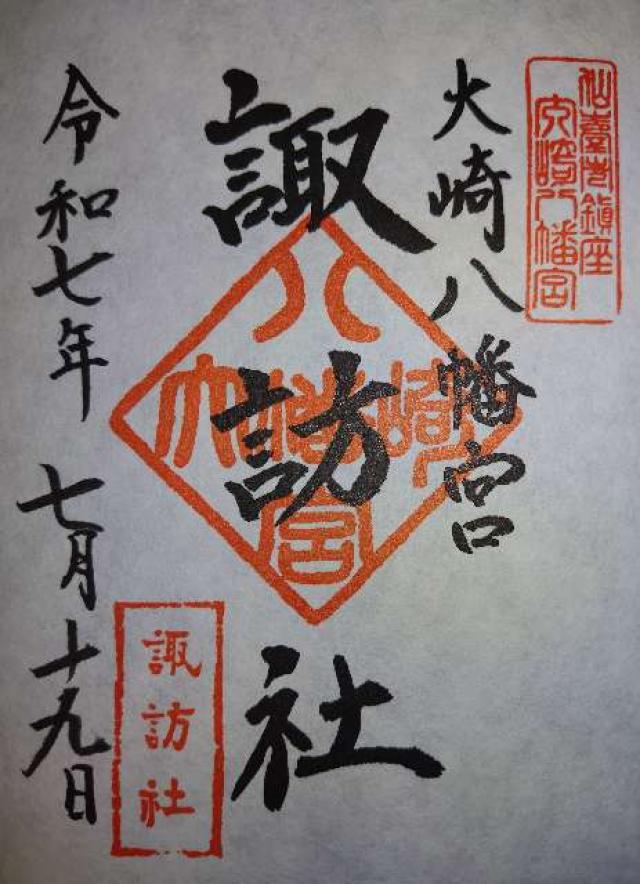 仙臺总鎮座
大崎八幡宮
大崎八幡宮
諏訪社
八幡宮
大崎
諏訪社
令和七年 七月十九日